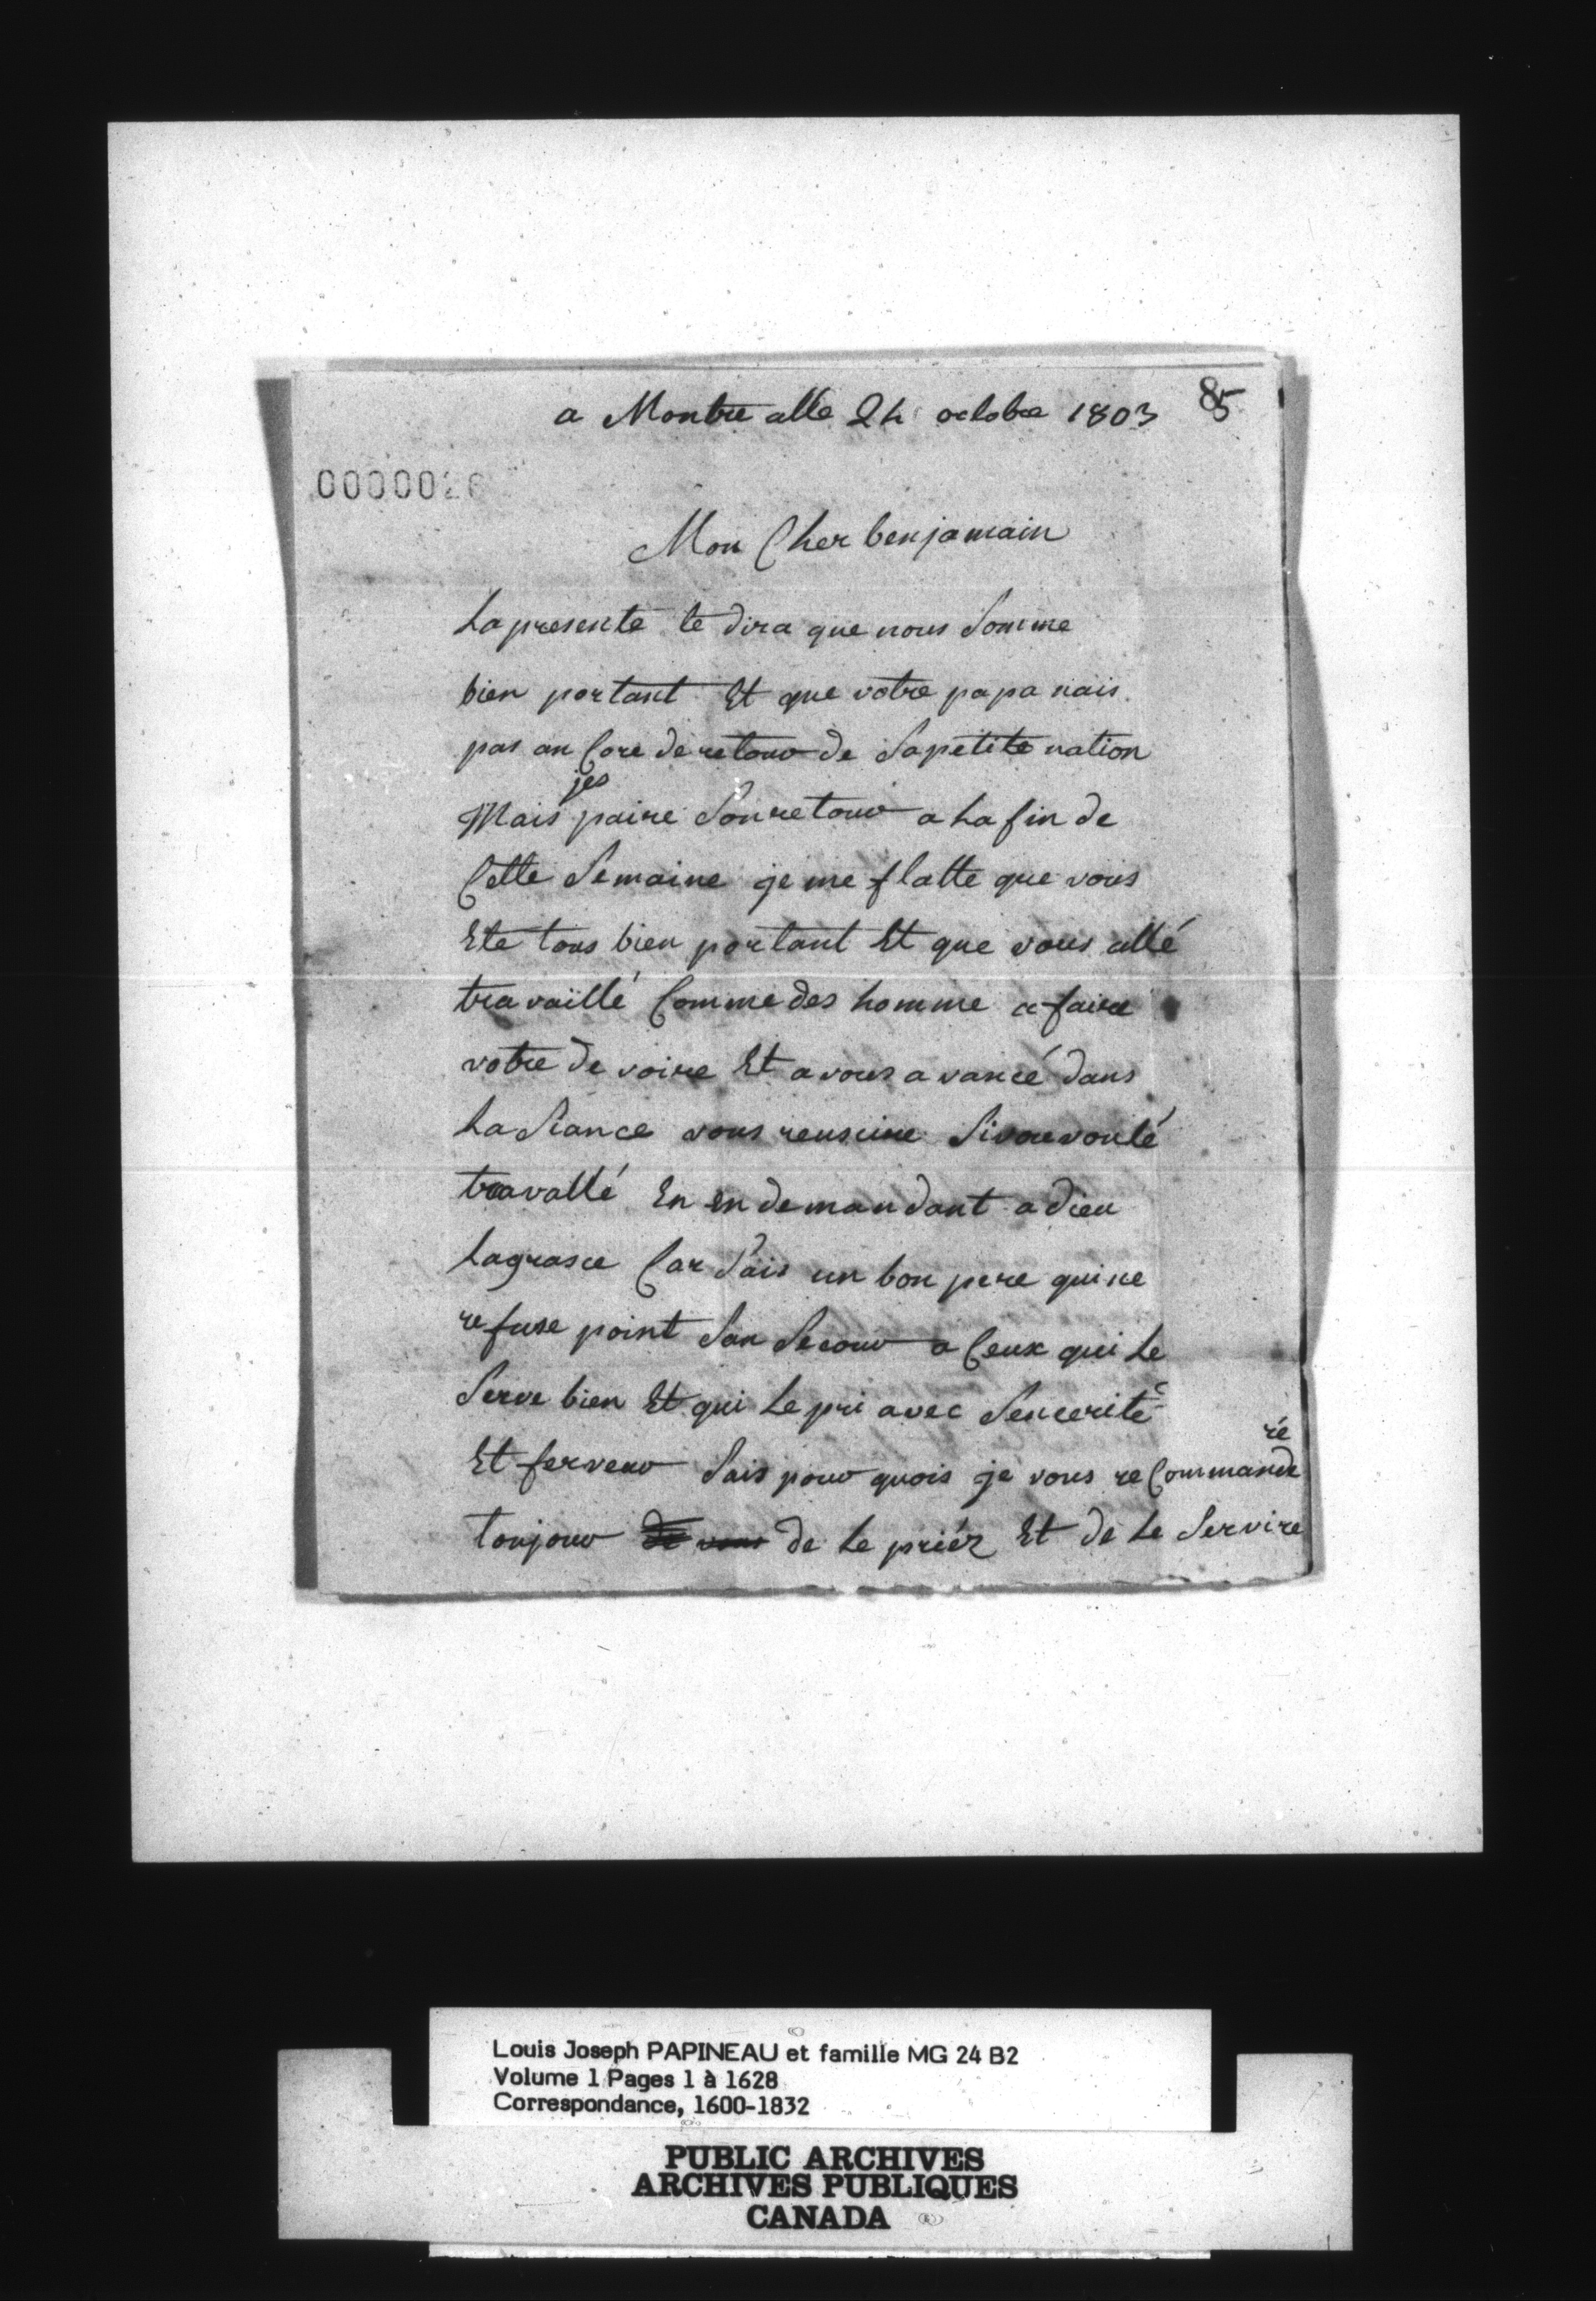 a Montre alle 24 octobre 1803
85
000002
Mon Cher benjamain
La presente te dira que nous Somme
bien portant Et que votre papa nais
pas an Core de retour de Sapetite nation
jes
Mais paire Son retour a La fin de
Cette Semaine je me flatte que vous
Ete tous bien portant Et que vous allé
travaillé Comme des homme a faire
votre de voire Et a vous a vancé dans
La Siance vous reuscire Si vou voulé
travallé En en demandant a dieu
La grasce Car Sais un bon pere qui ne
refuse point San Secour a Ceux qui Le
Serve bien Et qui Le pri avec Sencerité
ré
Et ferveur Sais pour quois je vous re Commande
toujour de vous de Le priér Et de Le Servire
Louis Joseph PAPINEAU et famille MG 24 B2
Volume 1 Pages 1 à 1628
Correspondance, 1600-1832
PUBLIC ARCHIVES
ARCHIVES PUBLIQUES
CANADA